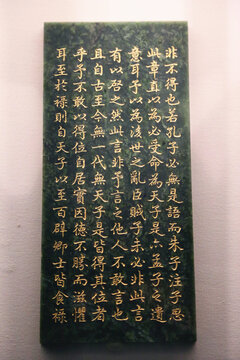 非不得也若孔子必無是語而朱子注子思
此章直以為必受命為天子是亦孟子之遺
意耳予以為後世之亂臣賊子未必非此言
有以啓之然此言非予言之他人不敢言也
且自古至今無一代無天子是皆得其位者
乎予不敢以得位自居實因德不勝而滋懼
耳至於祿則自天子以至百辟卿士皆食祿